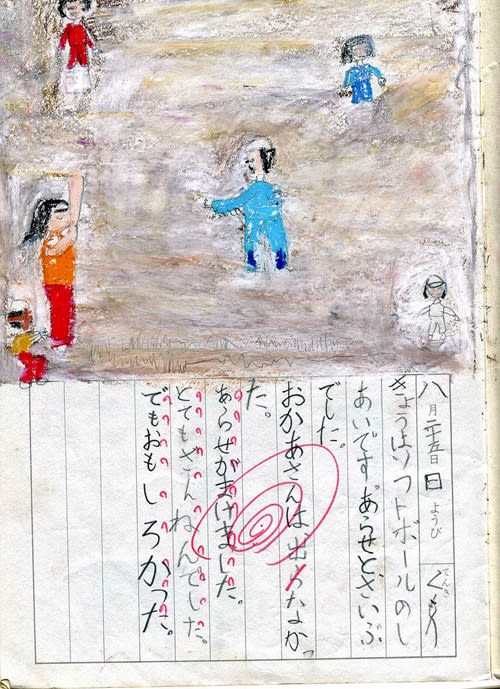 八月二十五日 日ようび てんき くもり
きょうはソフトボールのし
あいです。あらせとざいぶ
でした。
おかあさんは出らなかっ
た。
あらせがまけました。
とてもざんねんでした。
でもおもしろかった。